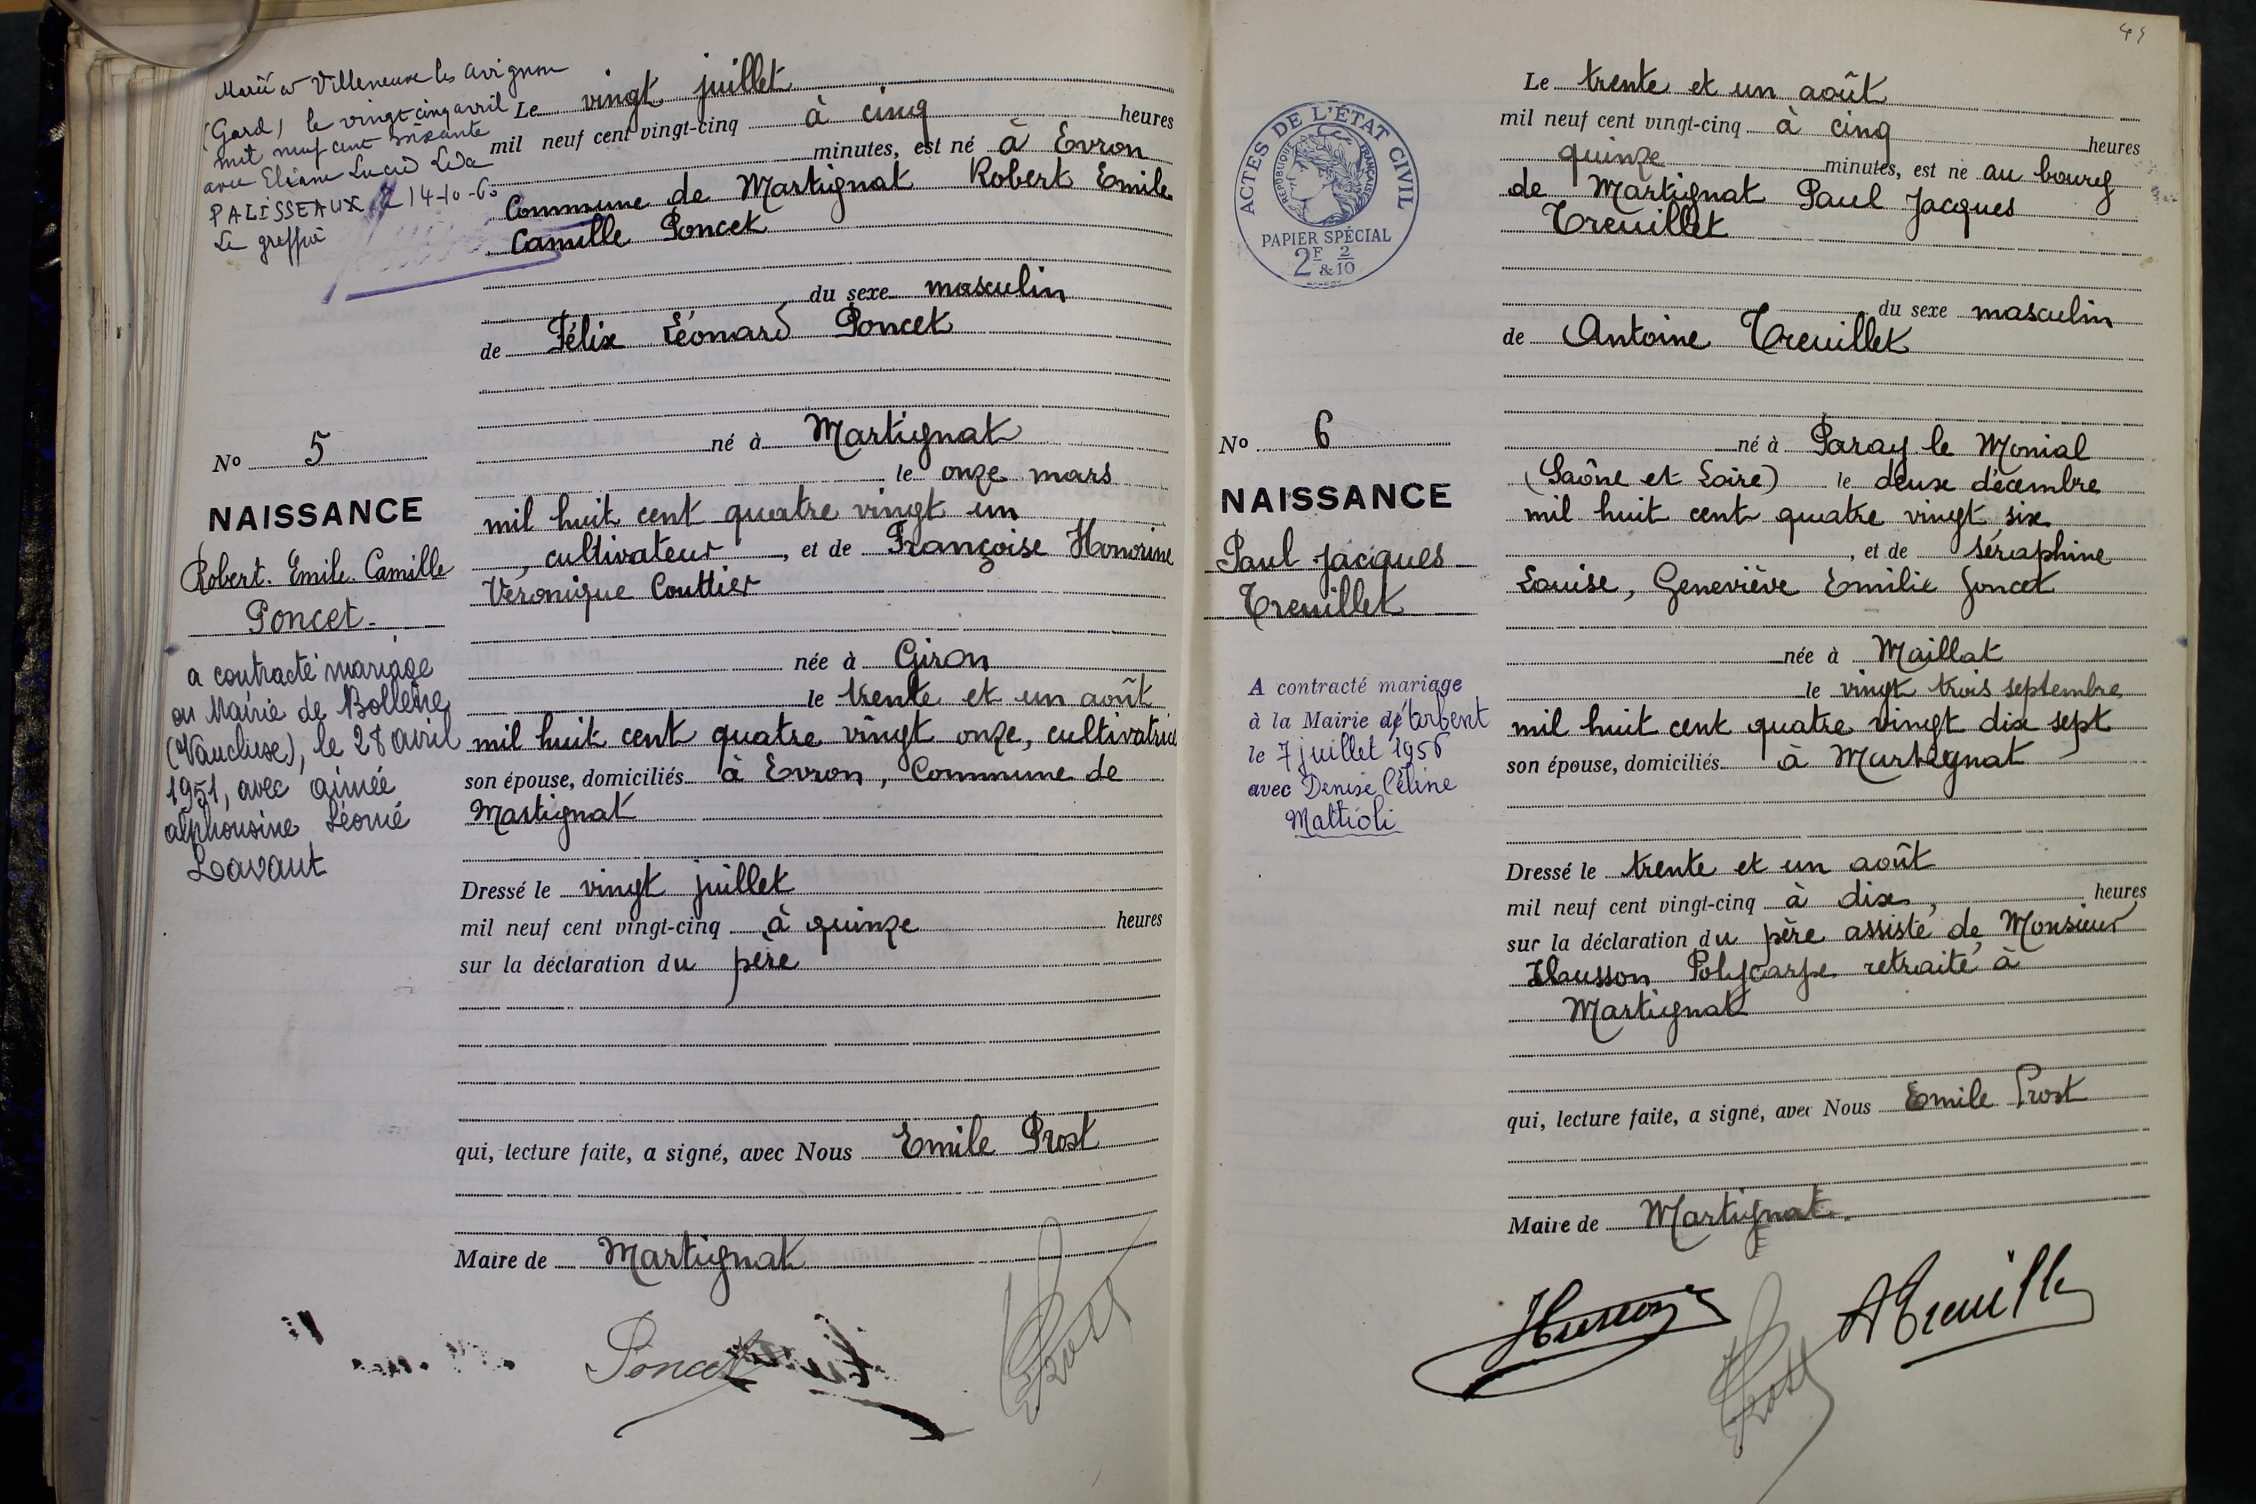 Marié à Villeneuve les Avignon
(Gard) le vingt cinq avril
mil neuf cent soixante
avec Eliane Lucie Lida
PALISSEAUX 14-10-60
Le greffier
Le vingt juillet
mil neuf cent vingt-cinq à cinq heures
minutes, est né à Evron
Commune de Martignat Robert Emile
Camille Poncet
du sexe masculin
de Félix Léonard Poncet
né à Martignat
le onze mars
mil huit cent quatre vingt un
, cultivateur, et de Françoise Honorine
Véronique Couttier
née à Giron
le trente et un août
mil huit cent quatre vingt onze, cultivatrice
son épouse, domiciliés à Evron, Commune de
Martignat
Dressé le vingt juillet
mil neuf cent vingt-cinq à quinze heures
sur la déclaration du père
qui, lecture faite, a signé, avec Nous Emile Prost
Maire de Martignat
Poncet
Prost
No 5
NAISSANCE
Robert. Emile. Camille
Poncet.
a contracté mariage
en Mairie de Bollène
(Vaucluse), le 28 avril
1951, avec aimée
alphonsine Léonie
Lavaut
45
ACTES DE L'ÉTAT CIVIL
RÉPUBLIQUE FRANÇAISE
PAPIER SPÉCIAL
2F & 2/10
Le trente et un août
mil neuf cent vingt-cinq à cinq heures
quinze minutes, est né au bourg
de Martignat Paul Jacques
Treuillet
du sexe masculin
de Antoine Treuillet
né à Paray le Monial
(Saône et Loire) le deux décembre
mil huit cent quatre vingt six
, et de Séraphine
Louise, Geneviève Emilie Joncet
née à Maillat
le vingt trois septembre
mil huit cent quatre vingt dix sept
son épouse, domiciliés à Martignat
Dressé le trente et un août
mil neuf cent vingt-cinq à dix, heures
sur la déclaration du père assisté de Monsieur
Husson Polycarpe retraité à
Martignat
qui, lecture faite, a signé, avec Nous Emile Prost
Maire de Martignat
Husson
Prost
A Treuillet
No 6
NAISSANCE
Paul Jacques
Treuillet
A contracté mariage
à la Mairie d'Arbent
le 7 juillet 1956
avec Denise Céline
Mattioli